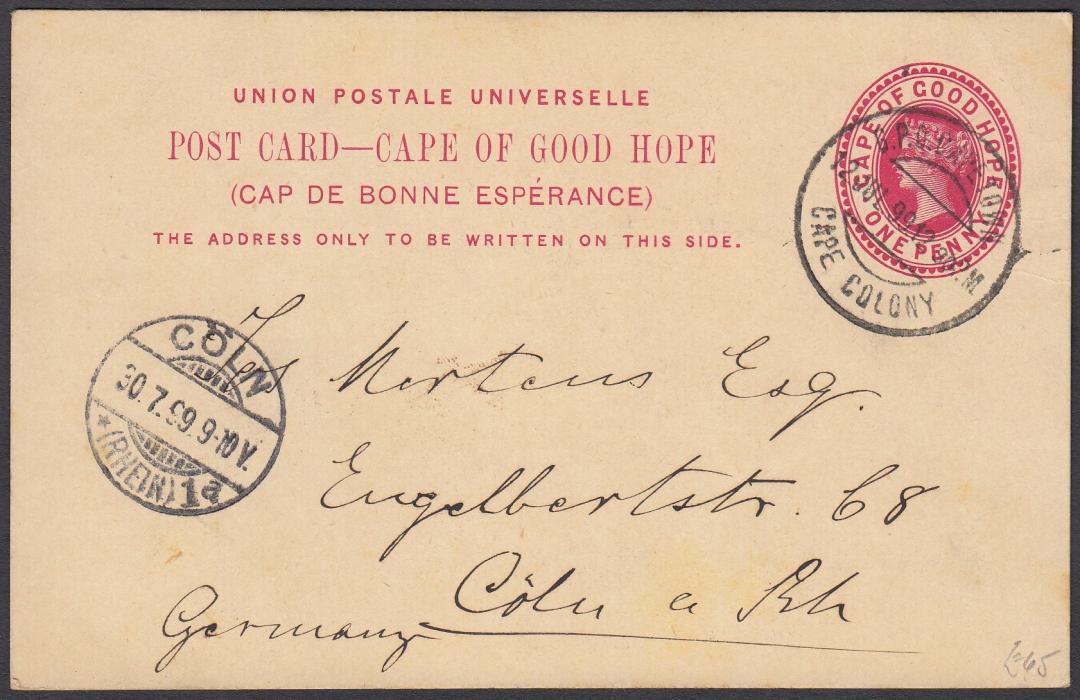 UNION POSTALE UNIVERSELLE
POST CARD—CAPE OF GOOD HOPE
(CAP DE BONNE ESPÉRANCE)
THE ADDRESS ONLY TO BE WRITTEN ON THIS SIDE.
CAPE OF GOOD HOPE
ONE PENNY
G.P.O. CAPE TOWN
JUL 99
CAPE COLONY
CÖLN
30.7.99.9-10V.
* (RHEIN) 1a
Mertens Esq.
Engelbertstr. 68
Cöln a Rh
Germany
£65